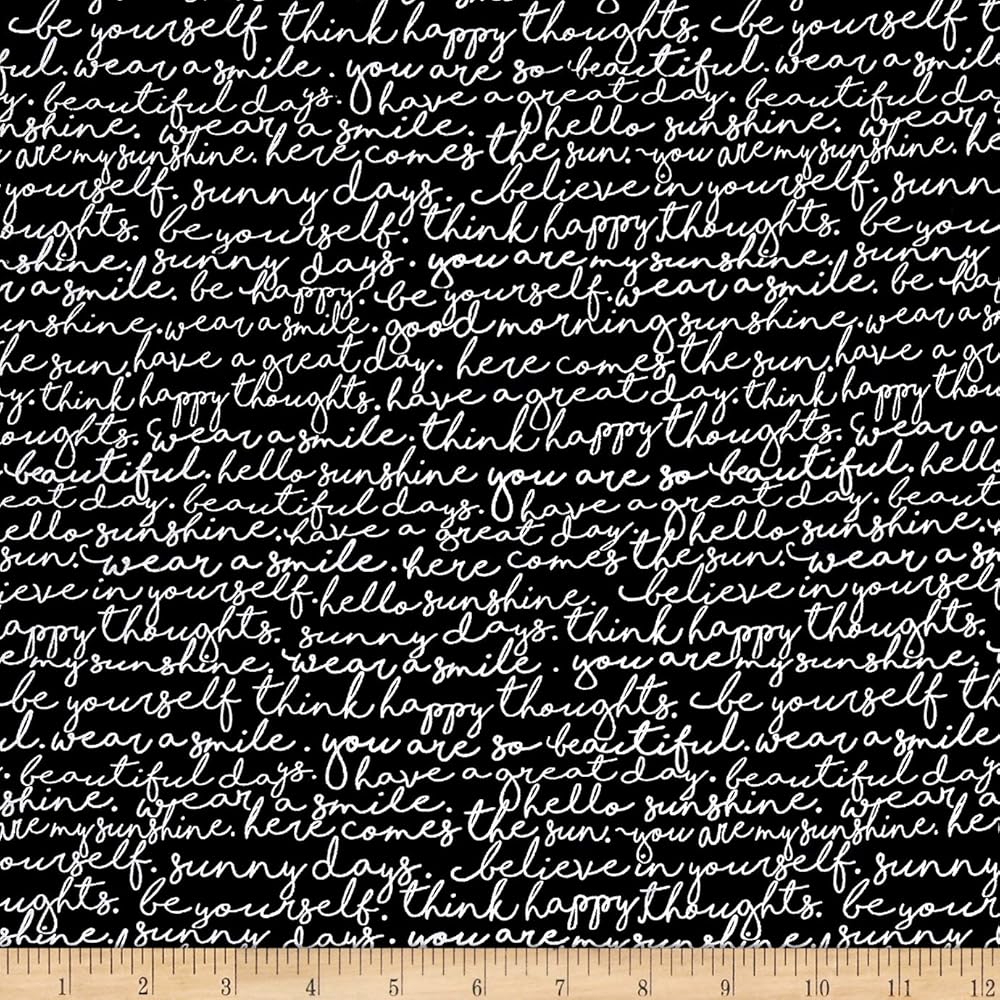 be yourself think happy thoughts. be yourself
ful. wear a smile. you are so beautiful. wear a smile
y. beautiful days. have a great day. beautiful da
nshine. wear a smile. hello sunshine. wear a
are my sunshine. here comes the sun. ~you are my sunshine. he
yourself. sunny days. believe in yourself. sunn
oughts. be yourself. think happy thoughts. be you
shine. sunny days. you are my sunshine. sunny
r a smile. be happy. be yourself. wear a smile. be ha
unshine. wear a smile. good morning sunshine. wear a s
he sun. have a great day. here comes the sun. have a gr
y. think happy thoughts. have a great day. think happy thou
oughts. wear a smile. think happy thoughts. wear a
beautiful. hello sunshine you are so beautiful. hello
eat day. beautiful days. have a great day. beaut
ello sunshine. have a great day. hello sunshine.
sun. wear a smile. here comes the sun. wear a sm
ieve in yourself. hello sunshine. believe in yourself
appy thoughts. sunny days. think happy thoughts.
e my sunshine. wear a smile. you are my sunshine.
be yourself think happy thoughts. be yourself th
ul. wear a smile. you are so beautiful. wear a smile
. beautiful days. have a great day. beautiful days
shine. wear a smile. hello sunshine. wear a
are my sunshine. here comes the sun. ~you are my sunshine. he
ourself. sunny days. believe in yourself. sunny
ughts. be yourself. think happy thoughts. be your
shine. sunny days. you are my sunshine. sunny
1 2 3 4 5 6 7 8 9 10 11 12